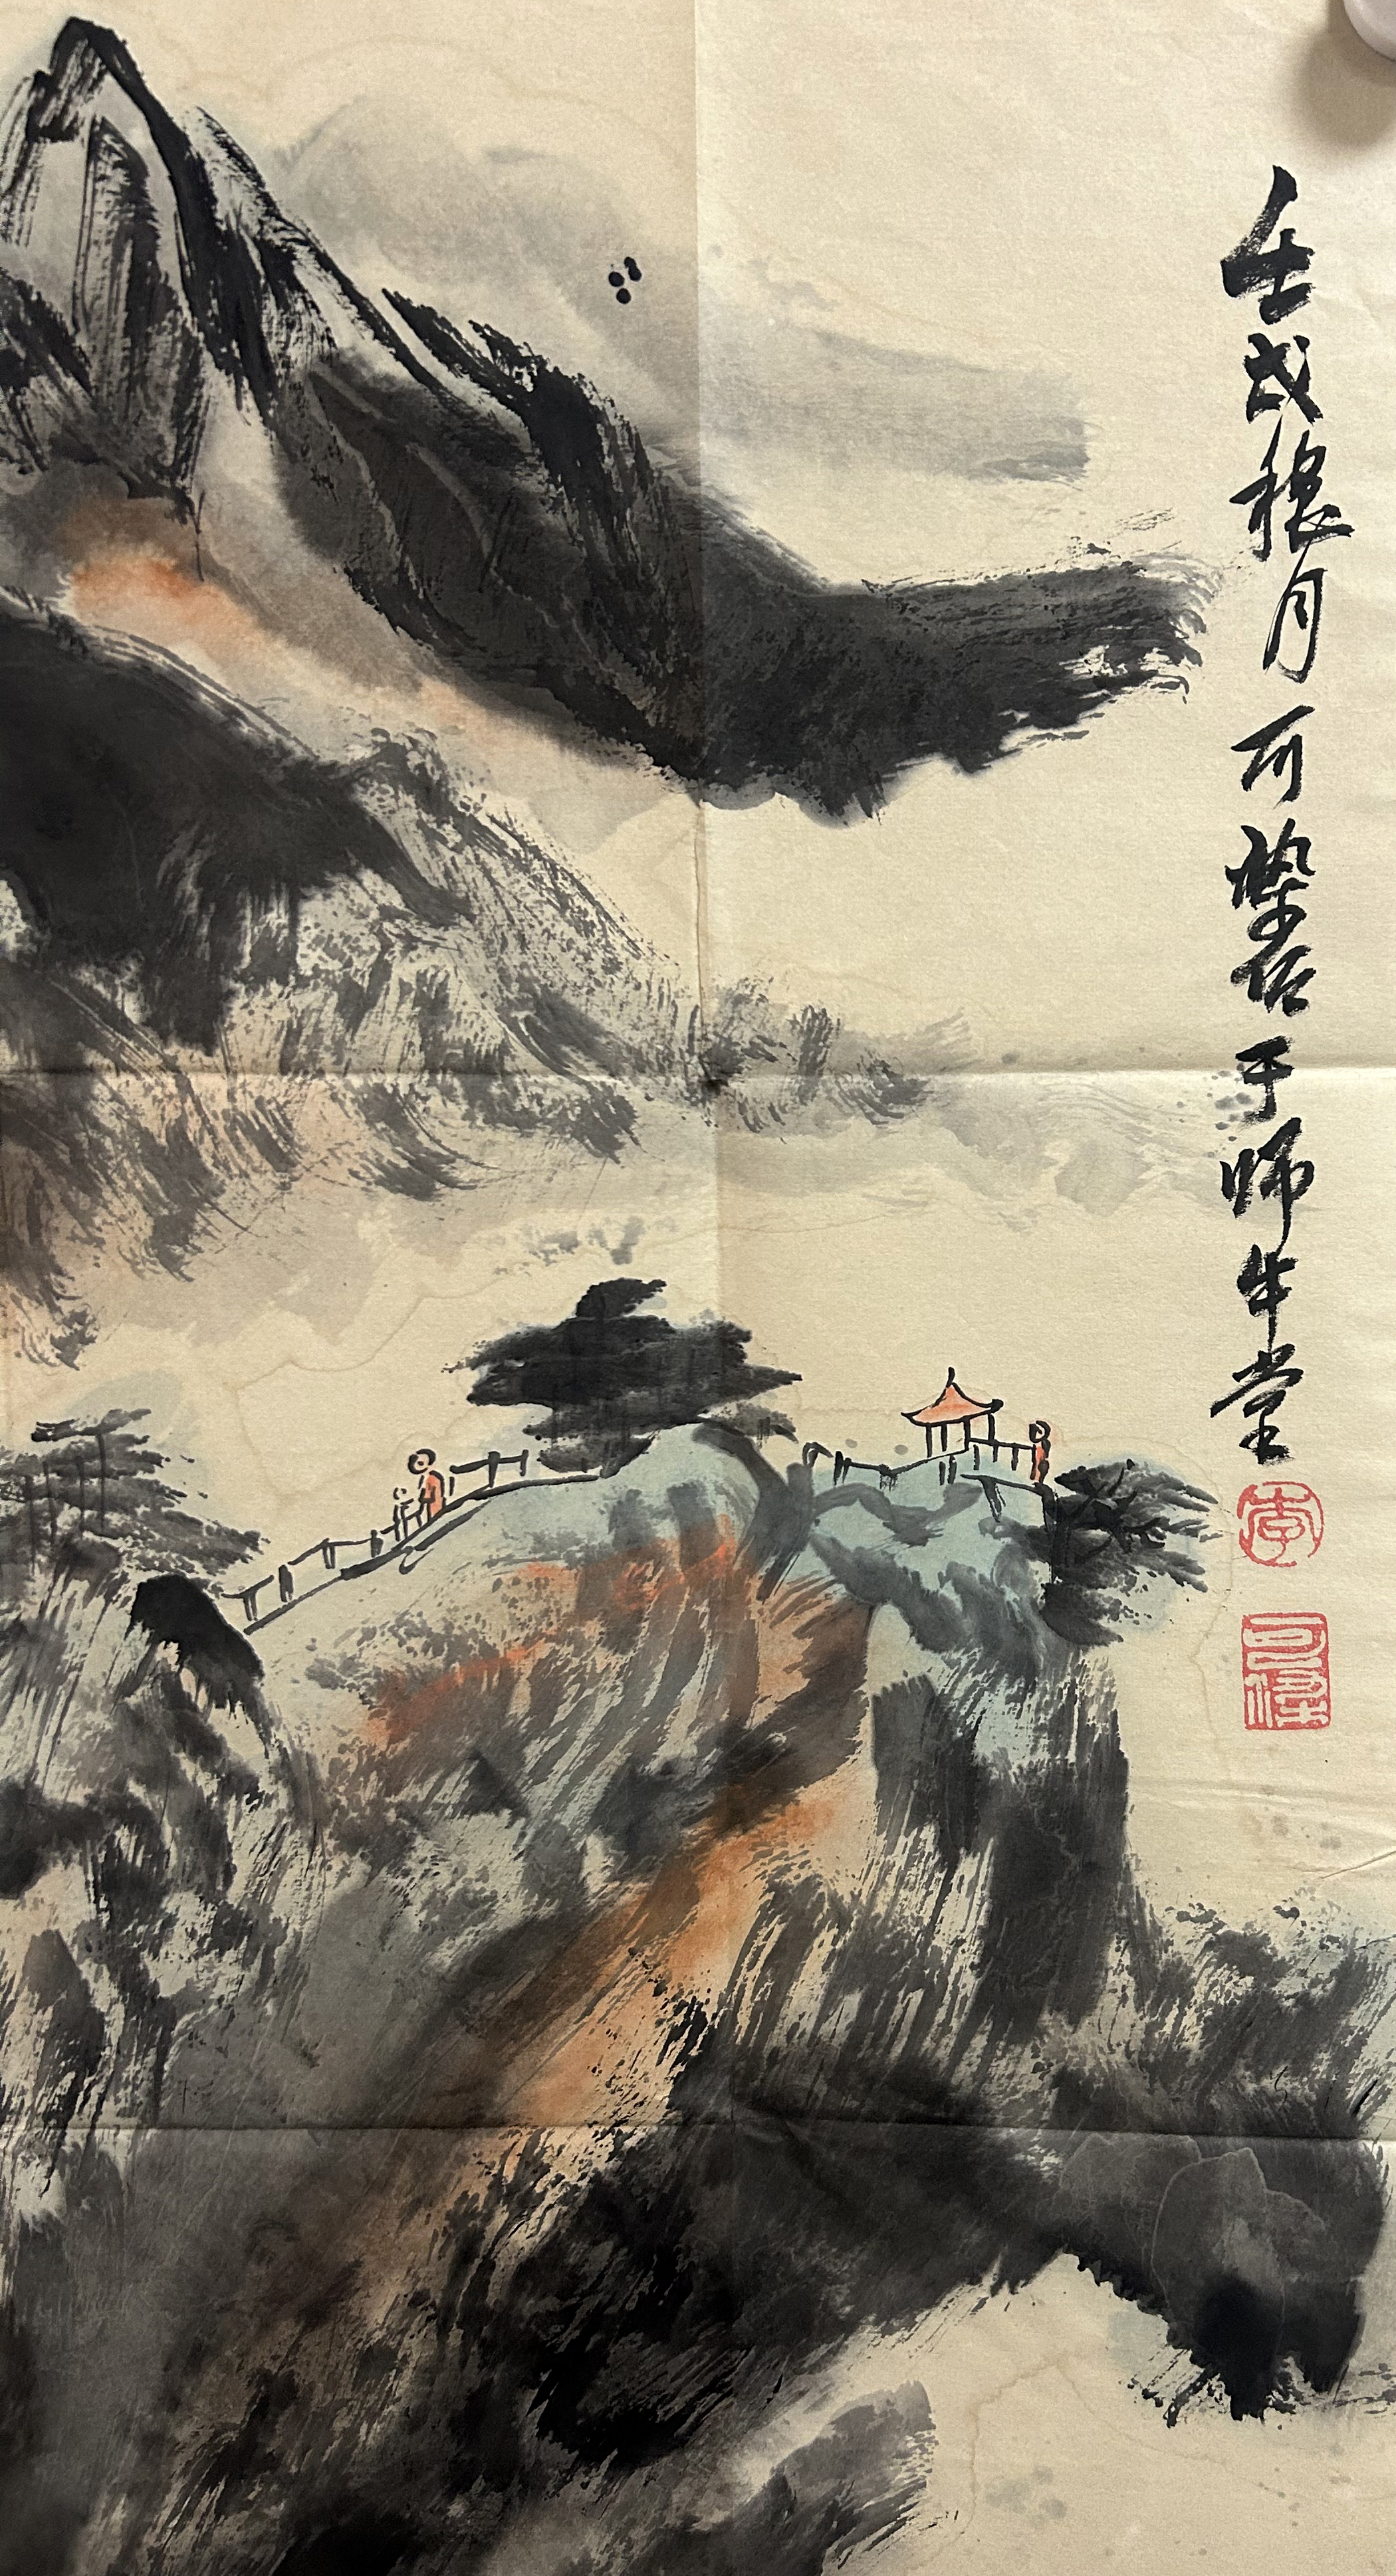 壬戌稂月可染居于师牛堂
李
可染